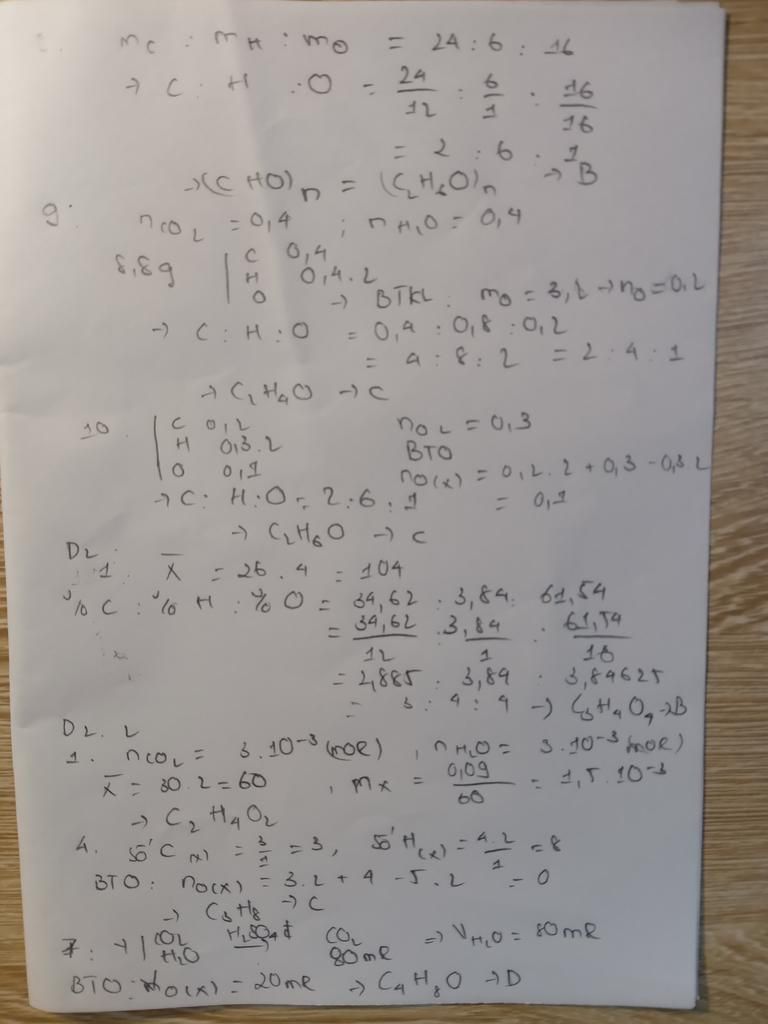 mC : mH : mO = 24 : 6 : 16
→ C : H : O = 24/12 : 6/1 : 16/16
= 2 : 6 : 1
→ (CHO)n = (C2H6O)n → B
9. nCO2 = 0,4 ; nH2O = 0,4
8,8g | C 0,4
H 0,4.2
O → BTKL : mO = 3,2 → nO = 0,2
→ C : H : O = 0,4 : 0,8 : 0,2
= 4 : 8 : 2 = 2 : 4 : 1
→ C2H4O → C
10. | C 0,2 nO2 = 0,3
H 0,3.2 BTO
O 0,1 nO(x) = 0,2.2 + 0,3 - 0,3.2
→ C : H : O = 2 : 6 : 1 = 0,1
→ C2H6O → C
D2.
1. X = 26.4 = 104
%C : %H : %O = 34,62 : 3,84 : 61,54
= 34,62/12 : 3,84/1 : 61,54/16
= 2,885 : 3,84 : 3,84625
= 3 : 4 : 4 → C3H4O4 → B
D2.2
1. nCO2 = 3.10⁻³ (mol), nH2O = 3.10⁻³ (mol)
X = 30.2 = 60 , mx = 0,09/60 = 1,5.10⁻³
→ C2H4O2
4. số C(x) = 3/1 = 3, số H(x) = 4.2/1 = 8
BTO : nO(x) = 3.2 + 4 - 5.2 = 0
→ C3H8 → C
7. | CO2 H2SO4đ CO2 ⇒ VH2O = 80ml
H2O → 80ml
BTO : O(x) = 20ml → C4H8O → D